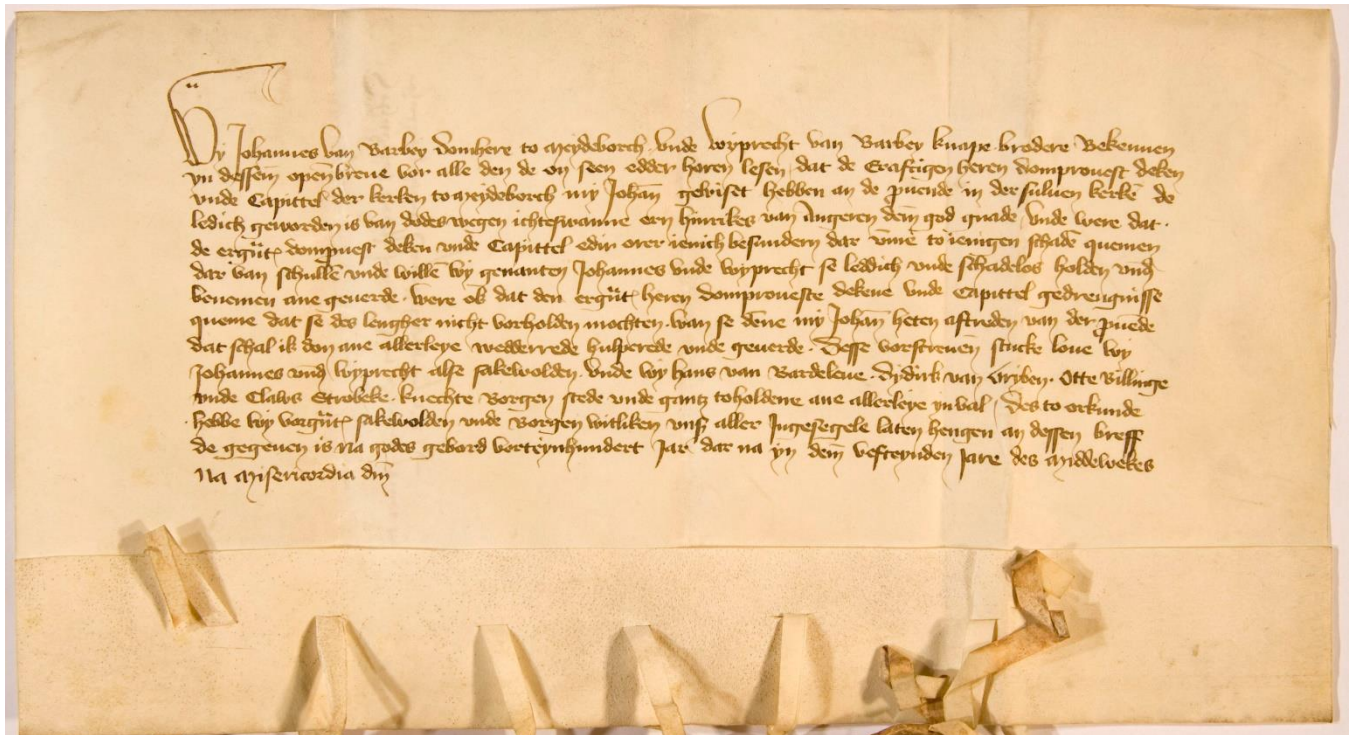 Wy Johannes van Barbey domhere to Meydeborch vnde Wyprecht van Barbey knape brodere Bekennen
yn dessem openbreue vor alle den de on seen edder horen lesen dat de Erafftigen heren domprouest deken
vnde Capittel der kerken to meydeborch my Johan̄ gewiset hebben an de p̄uende in der suluen kerkē de
ledich geworden is van dodes wegen ichteswanne ern hinrikes van Angeren dem god gnade vnde were dat
de ergn̄t domp̄uest deken vnde Capittel edir orer ienich besundern dar vm̄e to ienigen schadē quemen
dar van schullē vnde willē wy genanten Johannes vnde wyprecht se leddich vnde schadelos holden vnd
benemen ane geuerde. were ok dat den ergn̄t heren domproueste dekene vnde Capittel gedrengnisse
queme dat se des lengher nicht vorholden mochten. wan se den̄e my Johan̄ heten aftreden van der p̄uēde
dat schal ik don ane allerleye wedderrede hulperede vnde geuerde. Desse vorscreuen̄ stucke loue wy
Johannes vnd wyprecht alse sakewolden. vnde wy hans van Bardeleue. dydirk van Otte Billinge
vnde Claws Strobeke. knechte Borgen stede vnde gantz toholdene ane allerleye ynval / des to orkunde
hebbe wy vorgn̄t sakewolden vnde Borgen witliken vnse aller Ingesegele laten hengen an dessen breff
de gegeuen is na godes gebord verteynhundert Jar dar na yn dem vefteynden Jare des Middewekes
Na Misericordia dn̄i